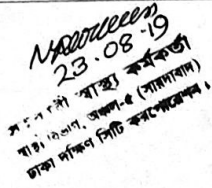 23.08.19
স্বাস্থ্য কর্মকর্তা
স্বাস্থ্য বিভাগ, অঞ্চল-৫ (সায়দাবাদ)
ঢাকা দক্ষিণ সিটি কর্পোরেশন।